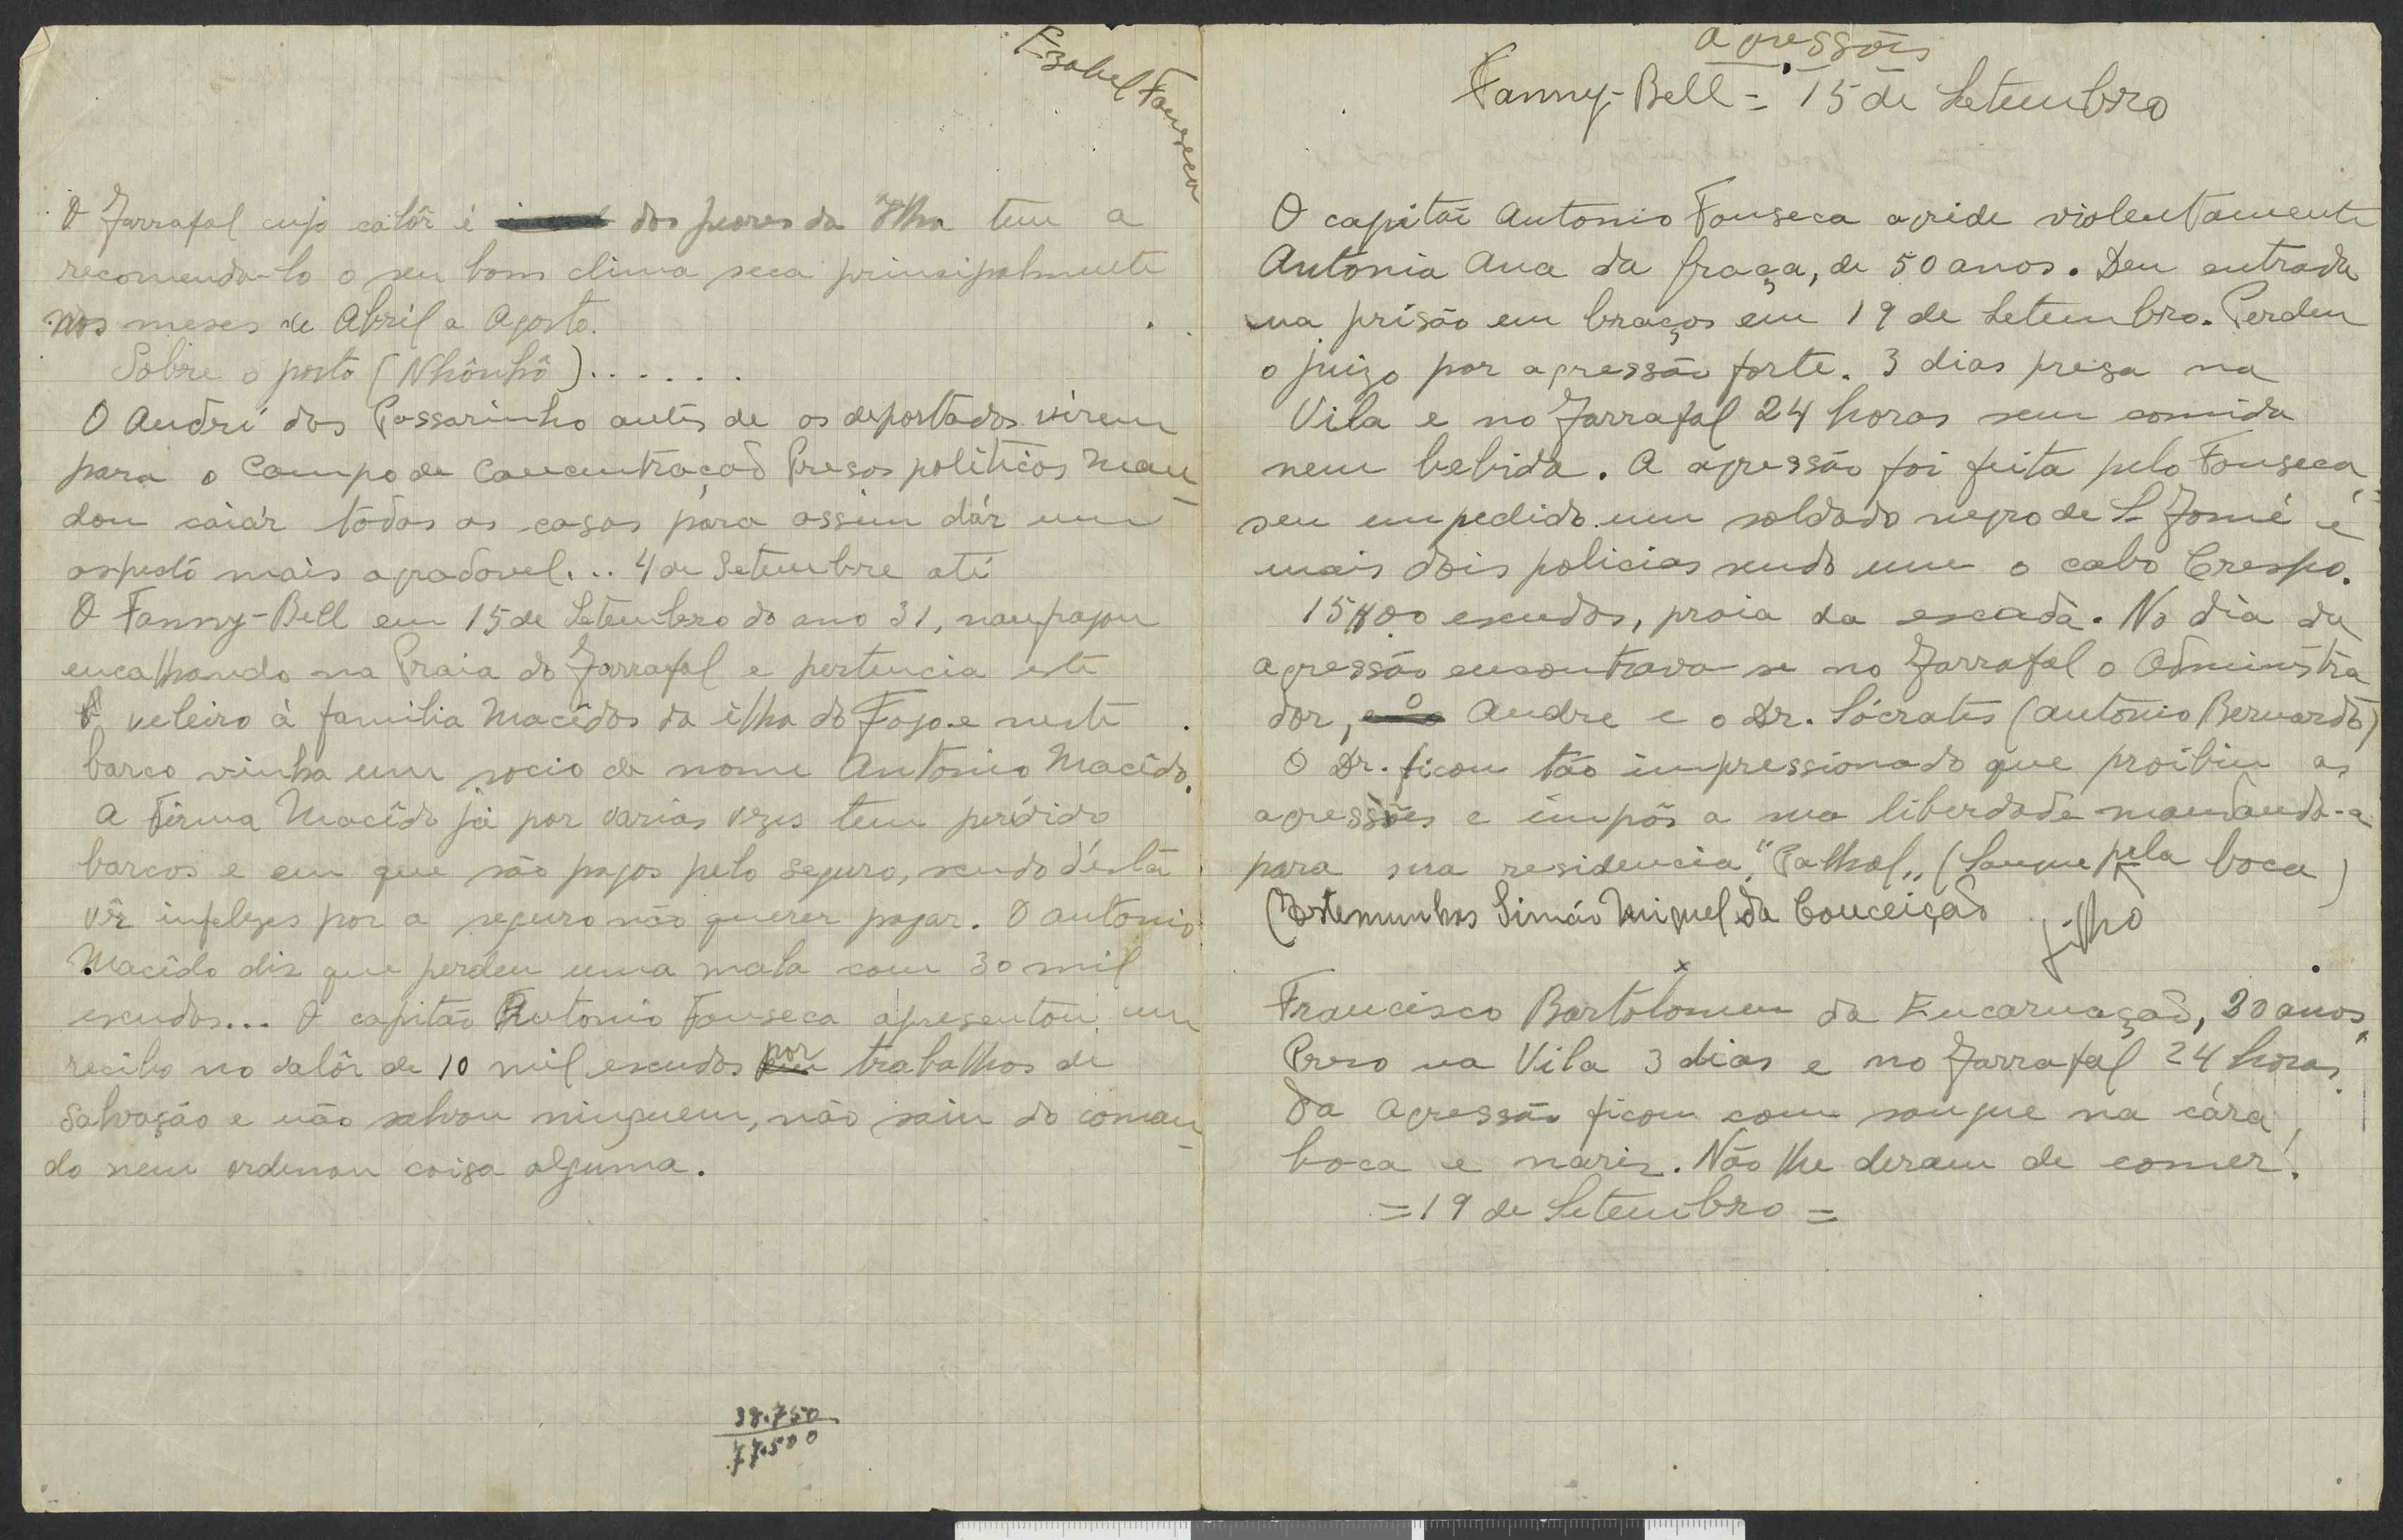 Izabel Fonseca
O Tarrafal cujo calôr é dos piores da Ilha tem a
recomenda-lo o seu bom clima seca principalmente
nos meses de Abril a Agosto.
Sobre o porto (Nhônhô)......
O André dos Passarinho antes de os deportados virem
para o Campo de Concentração Presos politicos man-
dou caiár tôdas as casas para assim dár um
aspectô mais agradavel... 4 de Setembre até
O Fanny-Bell em 15 de Setembro do ano 31, naufragou
encalhando na Praia do Tarrafal e pertencia este
veleiro à familia Macêdos da ilha do Fogo e neste
barco vinha um socio de nome Antonio Macêdo.
A Firma Macêdo já por varias vezes tem perdido
barcos e em que são pagos pelo seguro, sendo désta
vêz infelizes por a seguro não querer pagar. O Antonio
Macêdo diz que perdeu uma mala com 30 mil
escudos... O capitão Antonio Fonseca apresentou um
recibo no valôr de 10 mil escudos por trabalhos de
salvação e não salvou ninguem, não saiu do coman-
do nem ordenou coisa alguma.
38.750
77.500
Agressões
Fanny-Bell = 15 de Setembro
O capitão Antonio Fonseca agride violentamente
Antónia Ana da Graça, de 50 anos. Deu entrada
na prisão em braços em 19 de Setembro. Perdeu
o juizo por agressão forte. 3 dias presa na
Vila e no Tarrafal 24 horas sem comida
nem bebida. A agressão foi feita pelo Fonseca,
seu impedido um soldado negro de S. Tomé e
mais dois policias sendo um o cabo Crespo.
15$00 escudos, praia da escada. No dia da
agressão encontrava-se no Tarrafal o Administra
dor, o Andre e o Dr. Sócrates (Antonio Bernardo)
O Dr. ficou tão impressionado que proibiu as
agressões e impôs a sua liberdade mandando-a
para sua residencia "Palhal" (Sangue pela boca)
(Testemunhas Simão Miguel da Conceição filho
x
Francisco Bartolomeu da Encarnação, 20 anos.
Preso na Vila 3 dias e no Tarrafal 24 horas.
Da agressão ficou com sangue na cára,
boca e nariz. Não lhe deram de comer!
= 19 de Setembro =